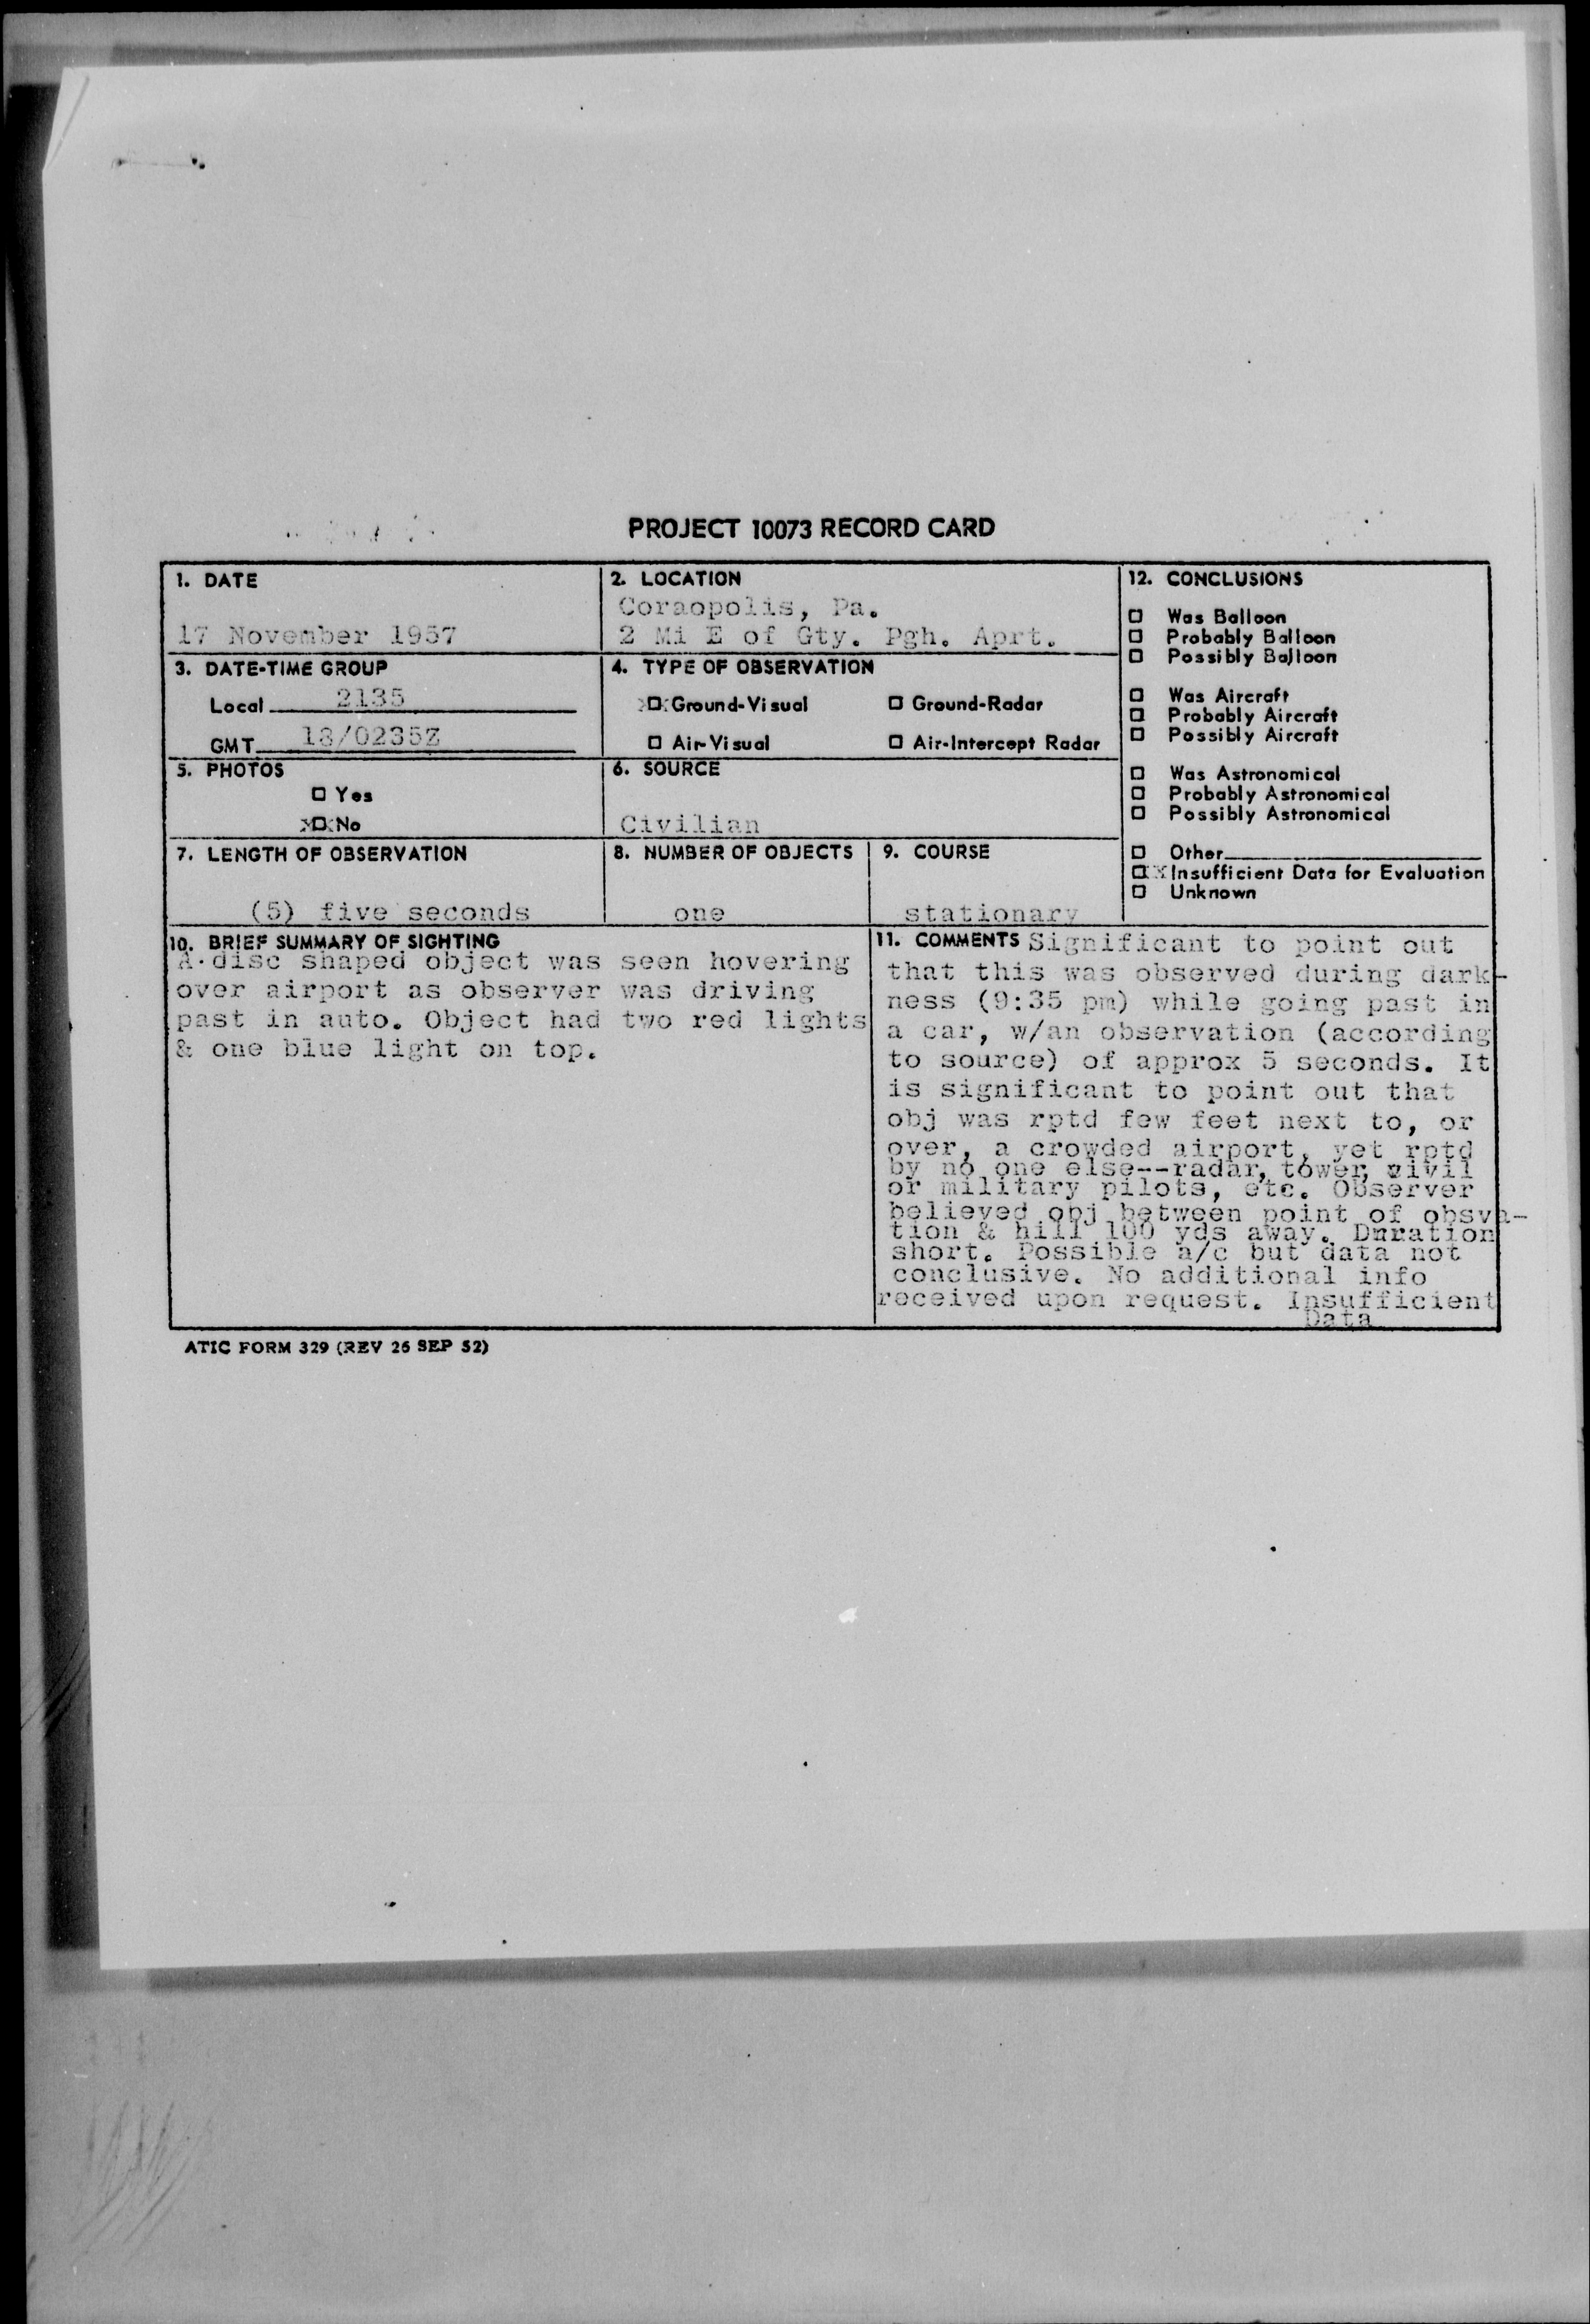 PROJECT 10073 RECORD CARD
1. DATE
17 November 1957
2. LOCATION
Coraopolis, Pa.
2 Mi E of Gty. Pgh. Aprt.
3. DATE-TIME GROUP
Local 2135
GMT 18/0235Z
4. TYPE OF OBSERVATION
X☐X Ground-Visual ☐ Ground-Radar
☐ Air-Visual ☐ Air-Intercept Radar
5. PHOTOS
☐ Yes
X☐X No
6. SOURCE
Civilian
7. LENGTH OF OBSERVATION
(5) five seconds
8. NUMBER OF OBJECTS
one
9. COURSE
stationary
10. BRIEF SUMMARY OF SIGHTING
A disc shaped object was seen hovering
over airport as observer was driving
past in auto. Object had two red lights
& one blue light on top.
11. COMMENTS Significant to point out
that this was observed during dark-
ness (9:35 pm) while going past in
a car, w/an observation (according
to source) of approx 5 seconds. It
is significant to point out that
obj was rptd few feet next to, or
over, a crowded airport, yet rptd
by no one else--radar, tower, civil
or military pilots, etc. Observer
believed obj between point of obsva-
tion & hill 100 yds away. Duration
short. Possible a/c but data not
conclusive. No additional info
received upon request. Insufficient
Data
12. CONCLUSIONS
☐ Was Balloon
☐ Probably Balloon
☐ Possibly Balloon
☐ Was Aircraft
☐ Probably Aircraft
☐ Possibly Aircraft
☐ Was Astronomical
☐ Probably Astronomical
☐ Possibly Astronomical
☐ Other
☐ X Insufficient Data for Evaluation
☐ Unknown
ATIC FORM 329 (REV 26 SEP 52)